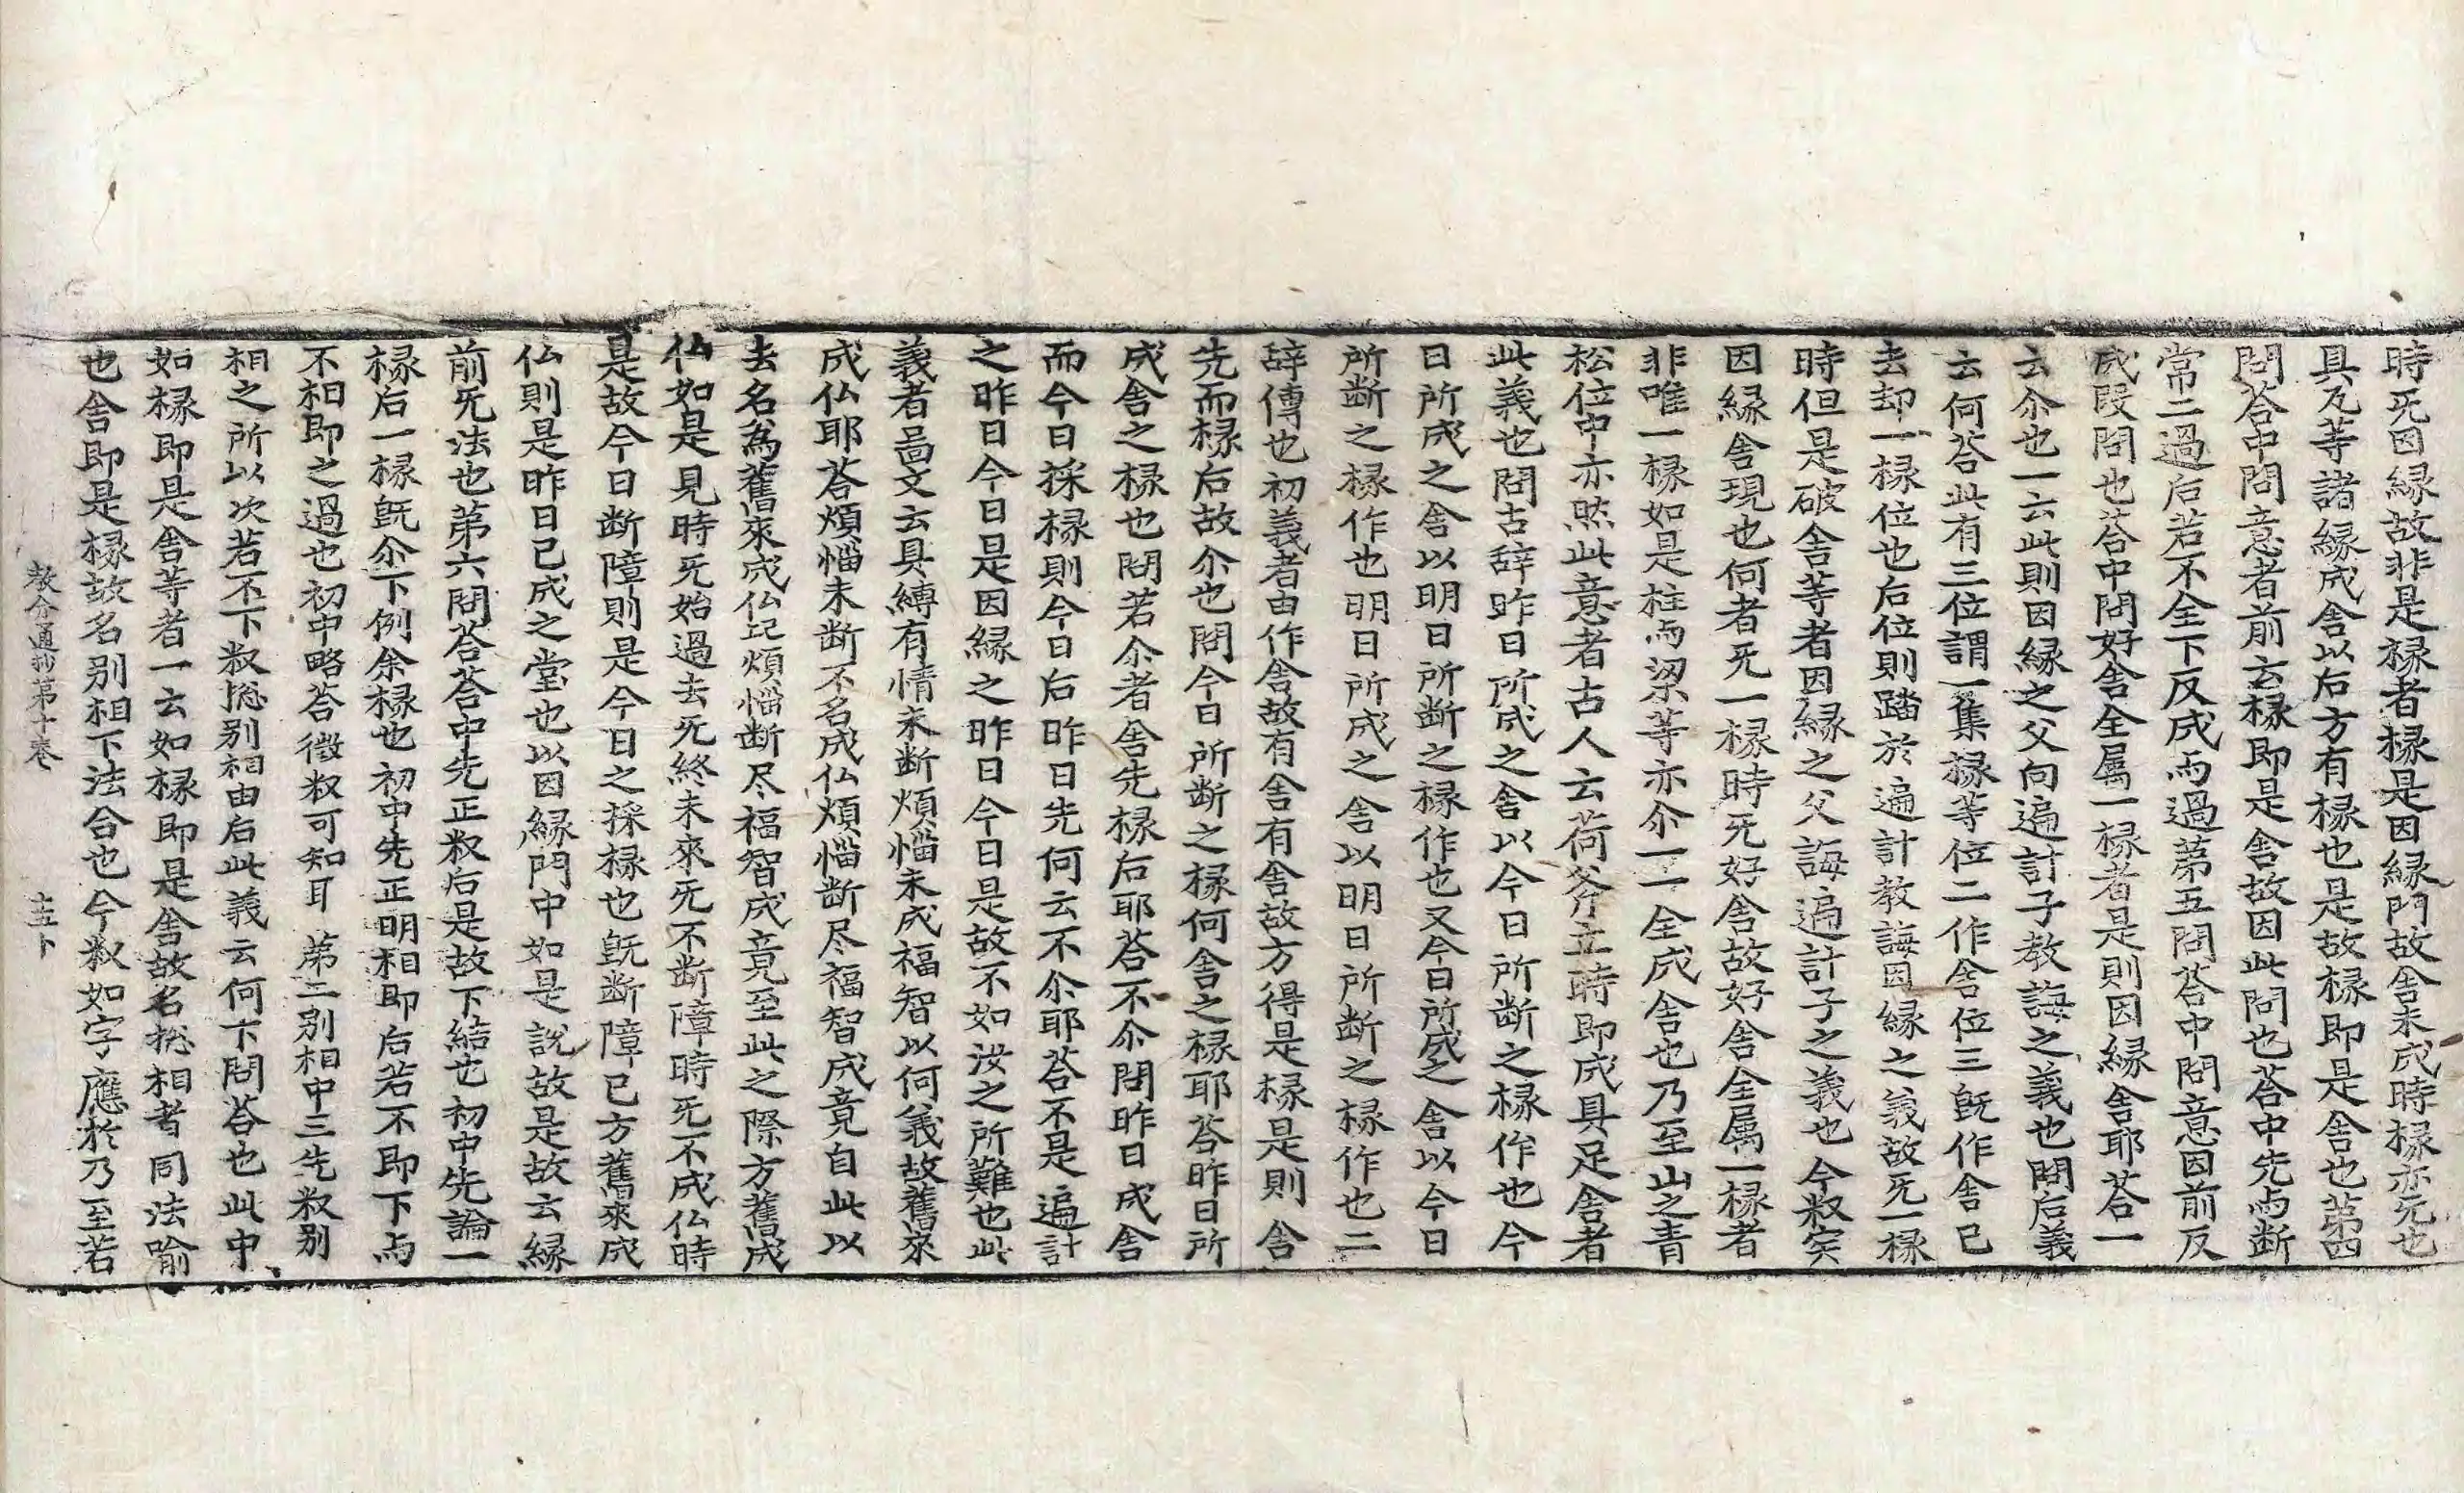 時无因縁故非是椽者椽是因縁門故舎未成時椽亦无也
具瓦等諸縁成舎以后方有椽也是故椽即是舎也苐四
問荅中問意者前云椽即是舎故因此問也荅中先两断
常二過后若不全下反成两過苐五問荅中問意因前反
成叚問也荅中問好舎全属一椽者是則因縁舎耶荅一
云尒也一云此則因縁之父向遍計子教誨之義也問后義
云何荅此有三位謂一集椽等位二作舎位三旣作舎已
去却一椽位也后位則踏於遍計教誨因縁之義故无一椽
時但是破舎等者因縁之父誨遍計子之義也今釈实
因縁舎現也何者无一椽時无好舎故好舎全属一椽者
非唯一椽如是柱两梁等亦尒一一全成舎也乃至山之青
松位中亦然此意者古人云荷斧立時即成具足舎者
此義也問古辞昨日所成之舎以今日所断之椽作也今
日所成之舎以明日所断之椽作也又今日所成之舎以今日
所断之椽作也明日所成之舎以明日所断之椽作也二
辞傳也初義者由作舎故有舎有舎故方得是椽是則舎
先而椽后故尒也問今日所断之椽何舎之椽耶荅昨日所
成舎之椽也問若尒者舎先椽后耶荅不尒問昨日成舎
而今日採椽則今日后昨日先何云不尒耶荅不是遍計
之昨日今日是因縁之昨日今日是故不如汝之所難也此
義者啚文云具縛有情未断煩惱未成福智以何義故舊來
成仏耶荅煩惱未断不名成仏煩惱断尽福智成竟自此以
去名為舊來成仏記煩惱断尽福智成竟至此之際方舊成
仏如是見時无始過去无終未來无不断障時无不成仏時
是故今日断障則是今日之採椽也旣断障已方舊來成
仏則是昨日已成之堂也以因縁門中如是說故是故云縁
前无法也苐六問荅荅中先正釈后是故下結也初中先論一
椽后一椽旣尒下例余椽也初中先正明相即后若不即下两
不相即之過也初中略荅徵釈可知耳 苐二别相中三先釈别
相之所以次若不下釈捴别相由后此義云何下問荅也此中
如椽即是舎等者一云如椽即是舎故名捴相者同法喻
也舎即是椽故名别相下法合也今釈如字應於乃至若
教分通抄苐十卷 十五卜